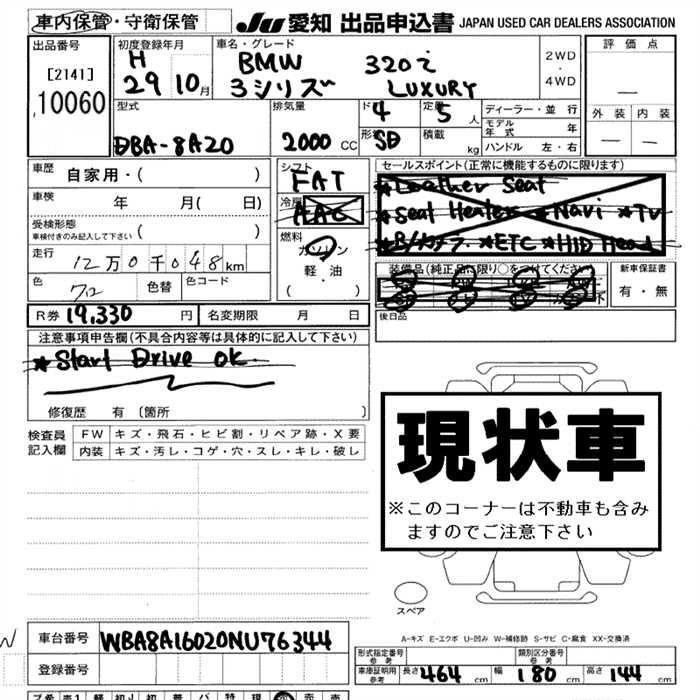 車内保管・守衛保管 JU 愛知 出品申込書 JAPAN USED CAR DEALERS ASSOCIATION
出品番号 初度登録年月 車名・グレード 2WD ・ 4WD 評価点
[2141] H BMW 320i
10060 29 10月 3シリーズ LUXURY 外装 内装
型式 排気量 ドア 4 定員 5人 ディーラー・並行
モデル年式 年
DBA-8A20 2000 CC 形状 SD 積載 kg ハンドル 左・右
車歴 自家用・( ) シフト FAT セールスポイント(正常に機能するものに限ります)
車検 年 月( 日) 冷房 AAC ★Leather Seat
★Seat Heater ★Navi ★TV
受検形態 車検付きのみ記入して下さい ( ) 燃料 ガソリン ★B/カメラ. ★ETC ★HID Head
走行 12万0千048km 軽・油 装備品(純正品に限り○をつけてください) 新車保証書
色 色替 色コード ( ・ ) 有・無
R券 19,330円 名変期限 月 日 後日品
注意事項申告欄(不具合内容等は具体的に記入して下さい)
★Start Drive ok.
修復歴 有 〔箇所 〕
検査員記入欄 FW キズ・飛石・ヒビ割・リペア跡・X要
内装 キズ・汚レ・コゲ・穴・スレ・キレ・破レ
現状車
※このコーナーは不動車も含み
ますのでご注意下さい
スペア
A-キズ E-エクボ U-凹み W-補修跡 S-サビ C-腐食 XX-交換済
車台番号 WBA8A16020NU76344
形式指定番号 参考 類別区分番号 参考
登録番号 車庫証明用 参考 長さ 464 cm 幅 180 cm 高さ 144 cm